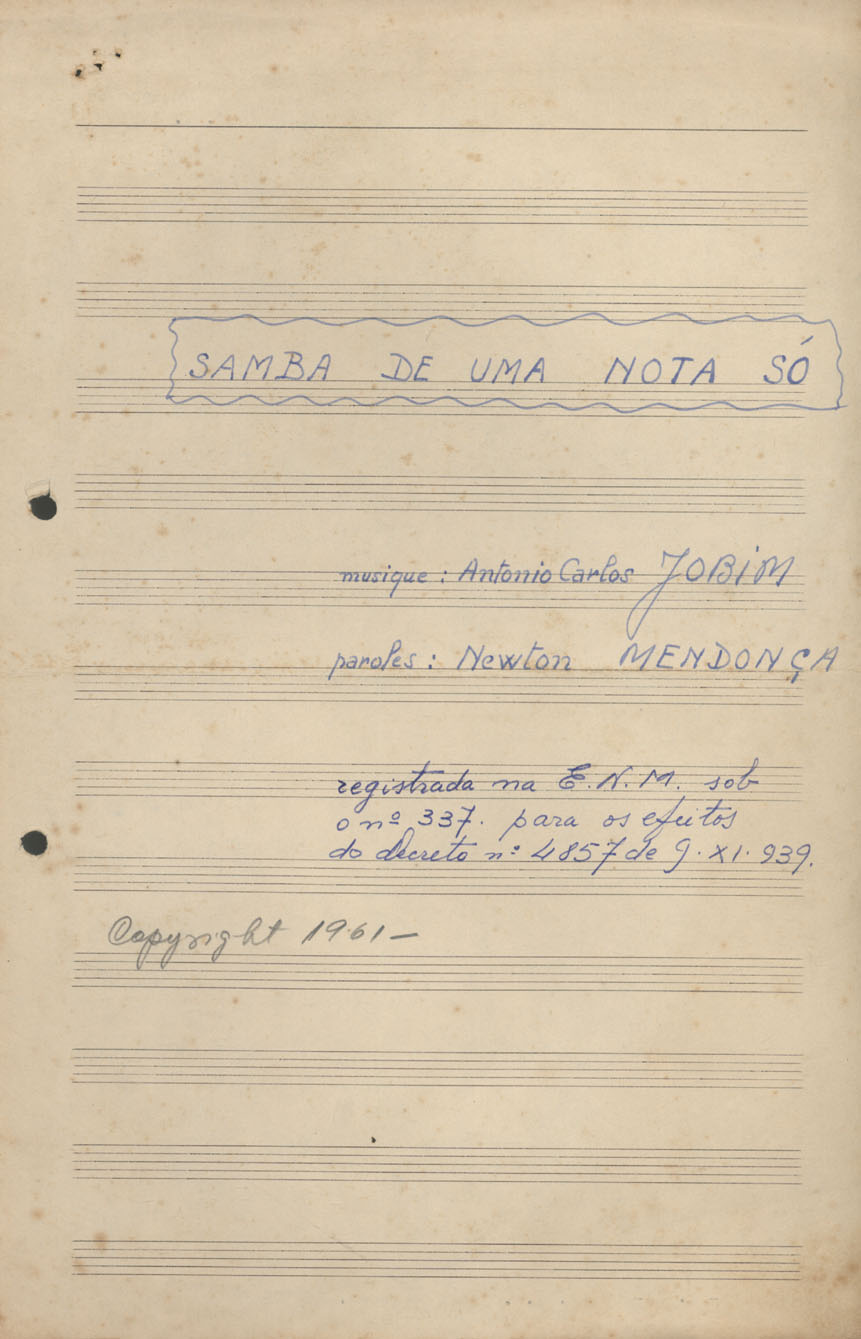 SAMBA DE UMA NOTA SÓ
musique : Antonio Carlos JOBIM
paroles : Newton MENDONÇA
registrada na E.N.M. sob
o nº 337. para os efeitos
do decreto nº 4857 de 9.XI.939.
Copyright 1961 –